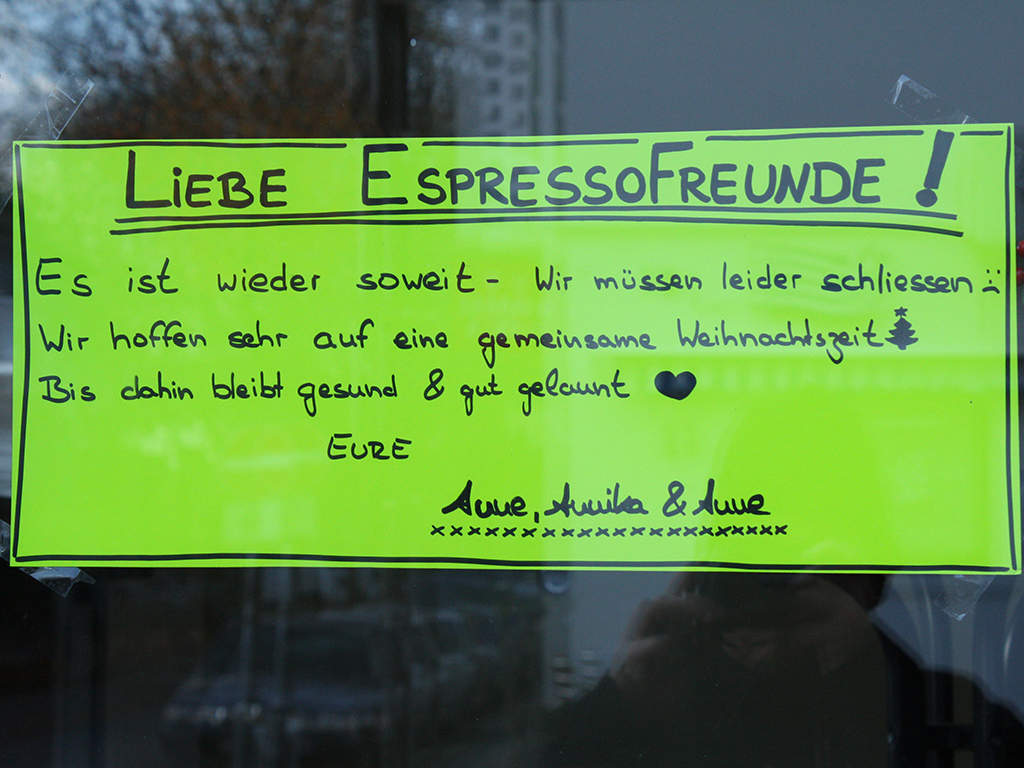 LiEBE ESPRESSOFREUNDE!
Es ist wieder soweit - Wir müssen leider schliessen :(
Wir hoffen sehr auf eine gemeinsame Weihnachtszeit
Bis dahin bleibt gesund & gut gelaunt ♥
EURE
Anne, Annika & Anne
xxxxxxxxxxxxxxxxxxxx